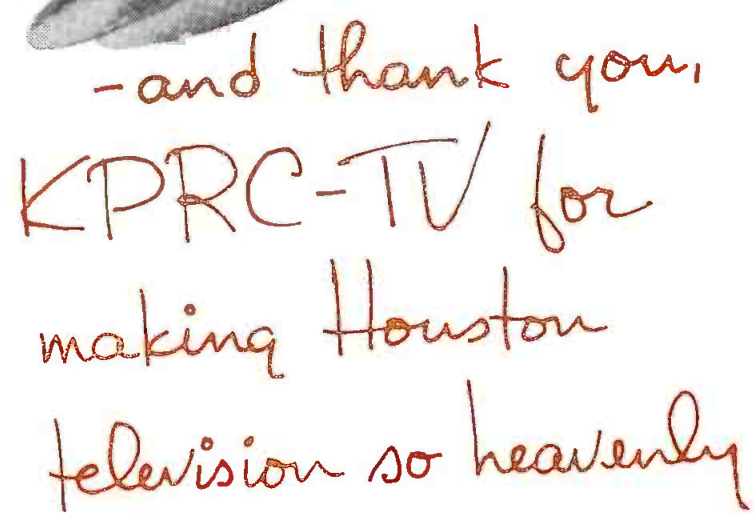 -and thank you,
KPRC-TV for
making Houston
television so heavenly